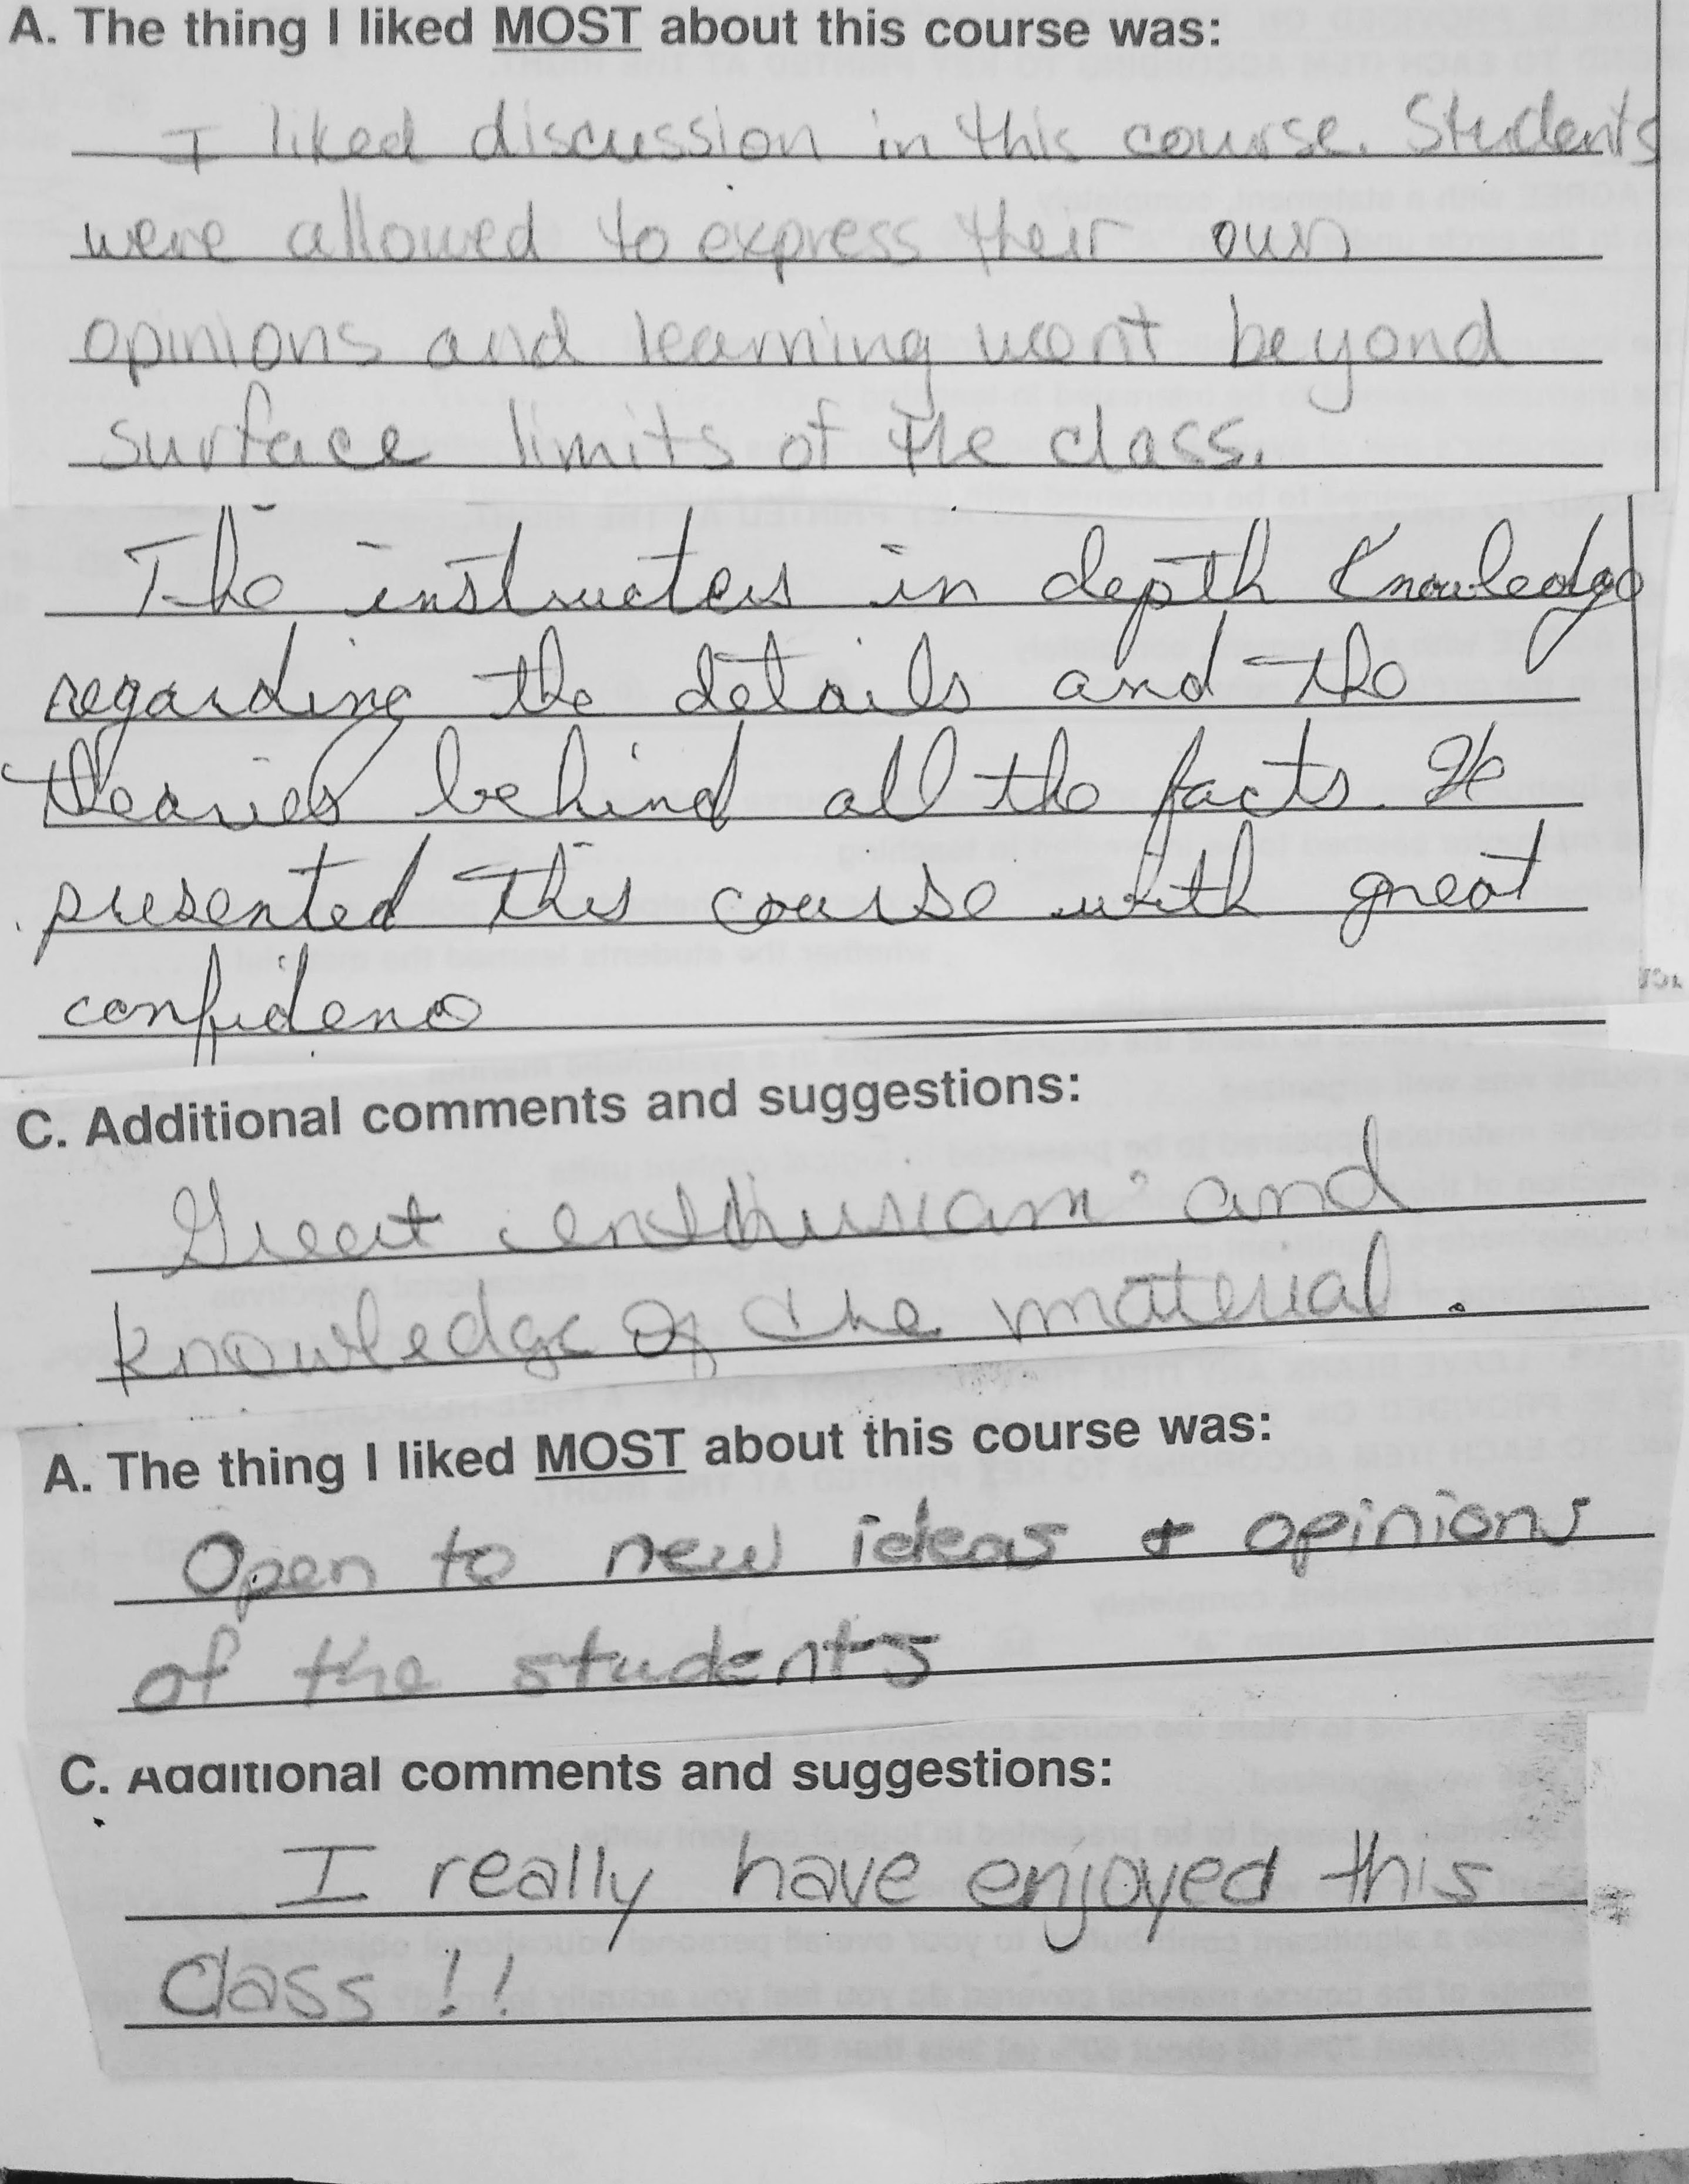 A. The thing I liked MOST about this course was:
I liked discussion in this course. Students
were allowed to express their own
opinions and learning went beyond
surface limits of the class.
The instructors in depth knowledge
regarding the details and the
thearies behind all the facts. He
presented this course with great
confidence
C. Additional comments and suggestions:
Great enthusiam and
knowledge of the material.
A. The thing I liked MOST about this course was:
Open to new ideas + opinions
of the students
C. Additional comments and suggestions:
I really have enjoyed this
class!!